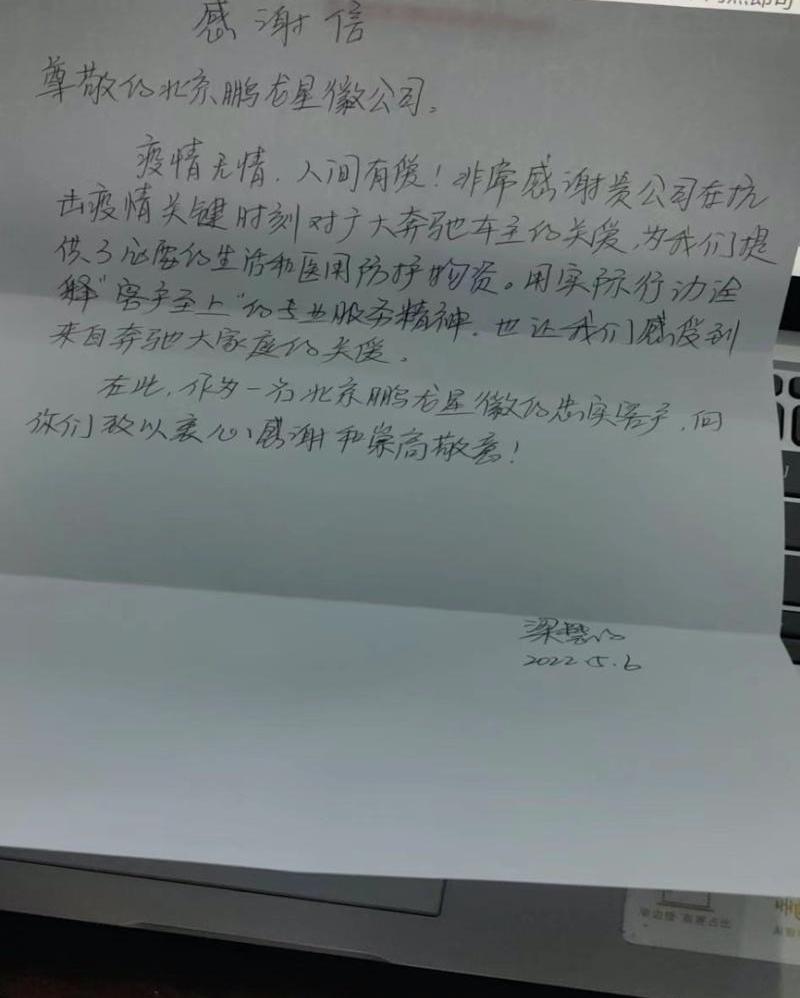 感谢信
尊敬的北京鹏龙星徽公司。
疫情无情,人间有爱!非常感谢贵公司在抗
击疫情关键时刻对于大奔驰车主的关爱,为我们提
供了必要的生活和医用防护物资。用实际行动诠
释"客户至上"的专业服务精神,也让我们感受到
来自奔驰大家庭的关爱。
在此,作为一名北京鹏龙星徽的忠实客户,向
你们致以衷心感谢和崇高敬意!
梁
2022.5.6